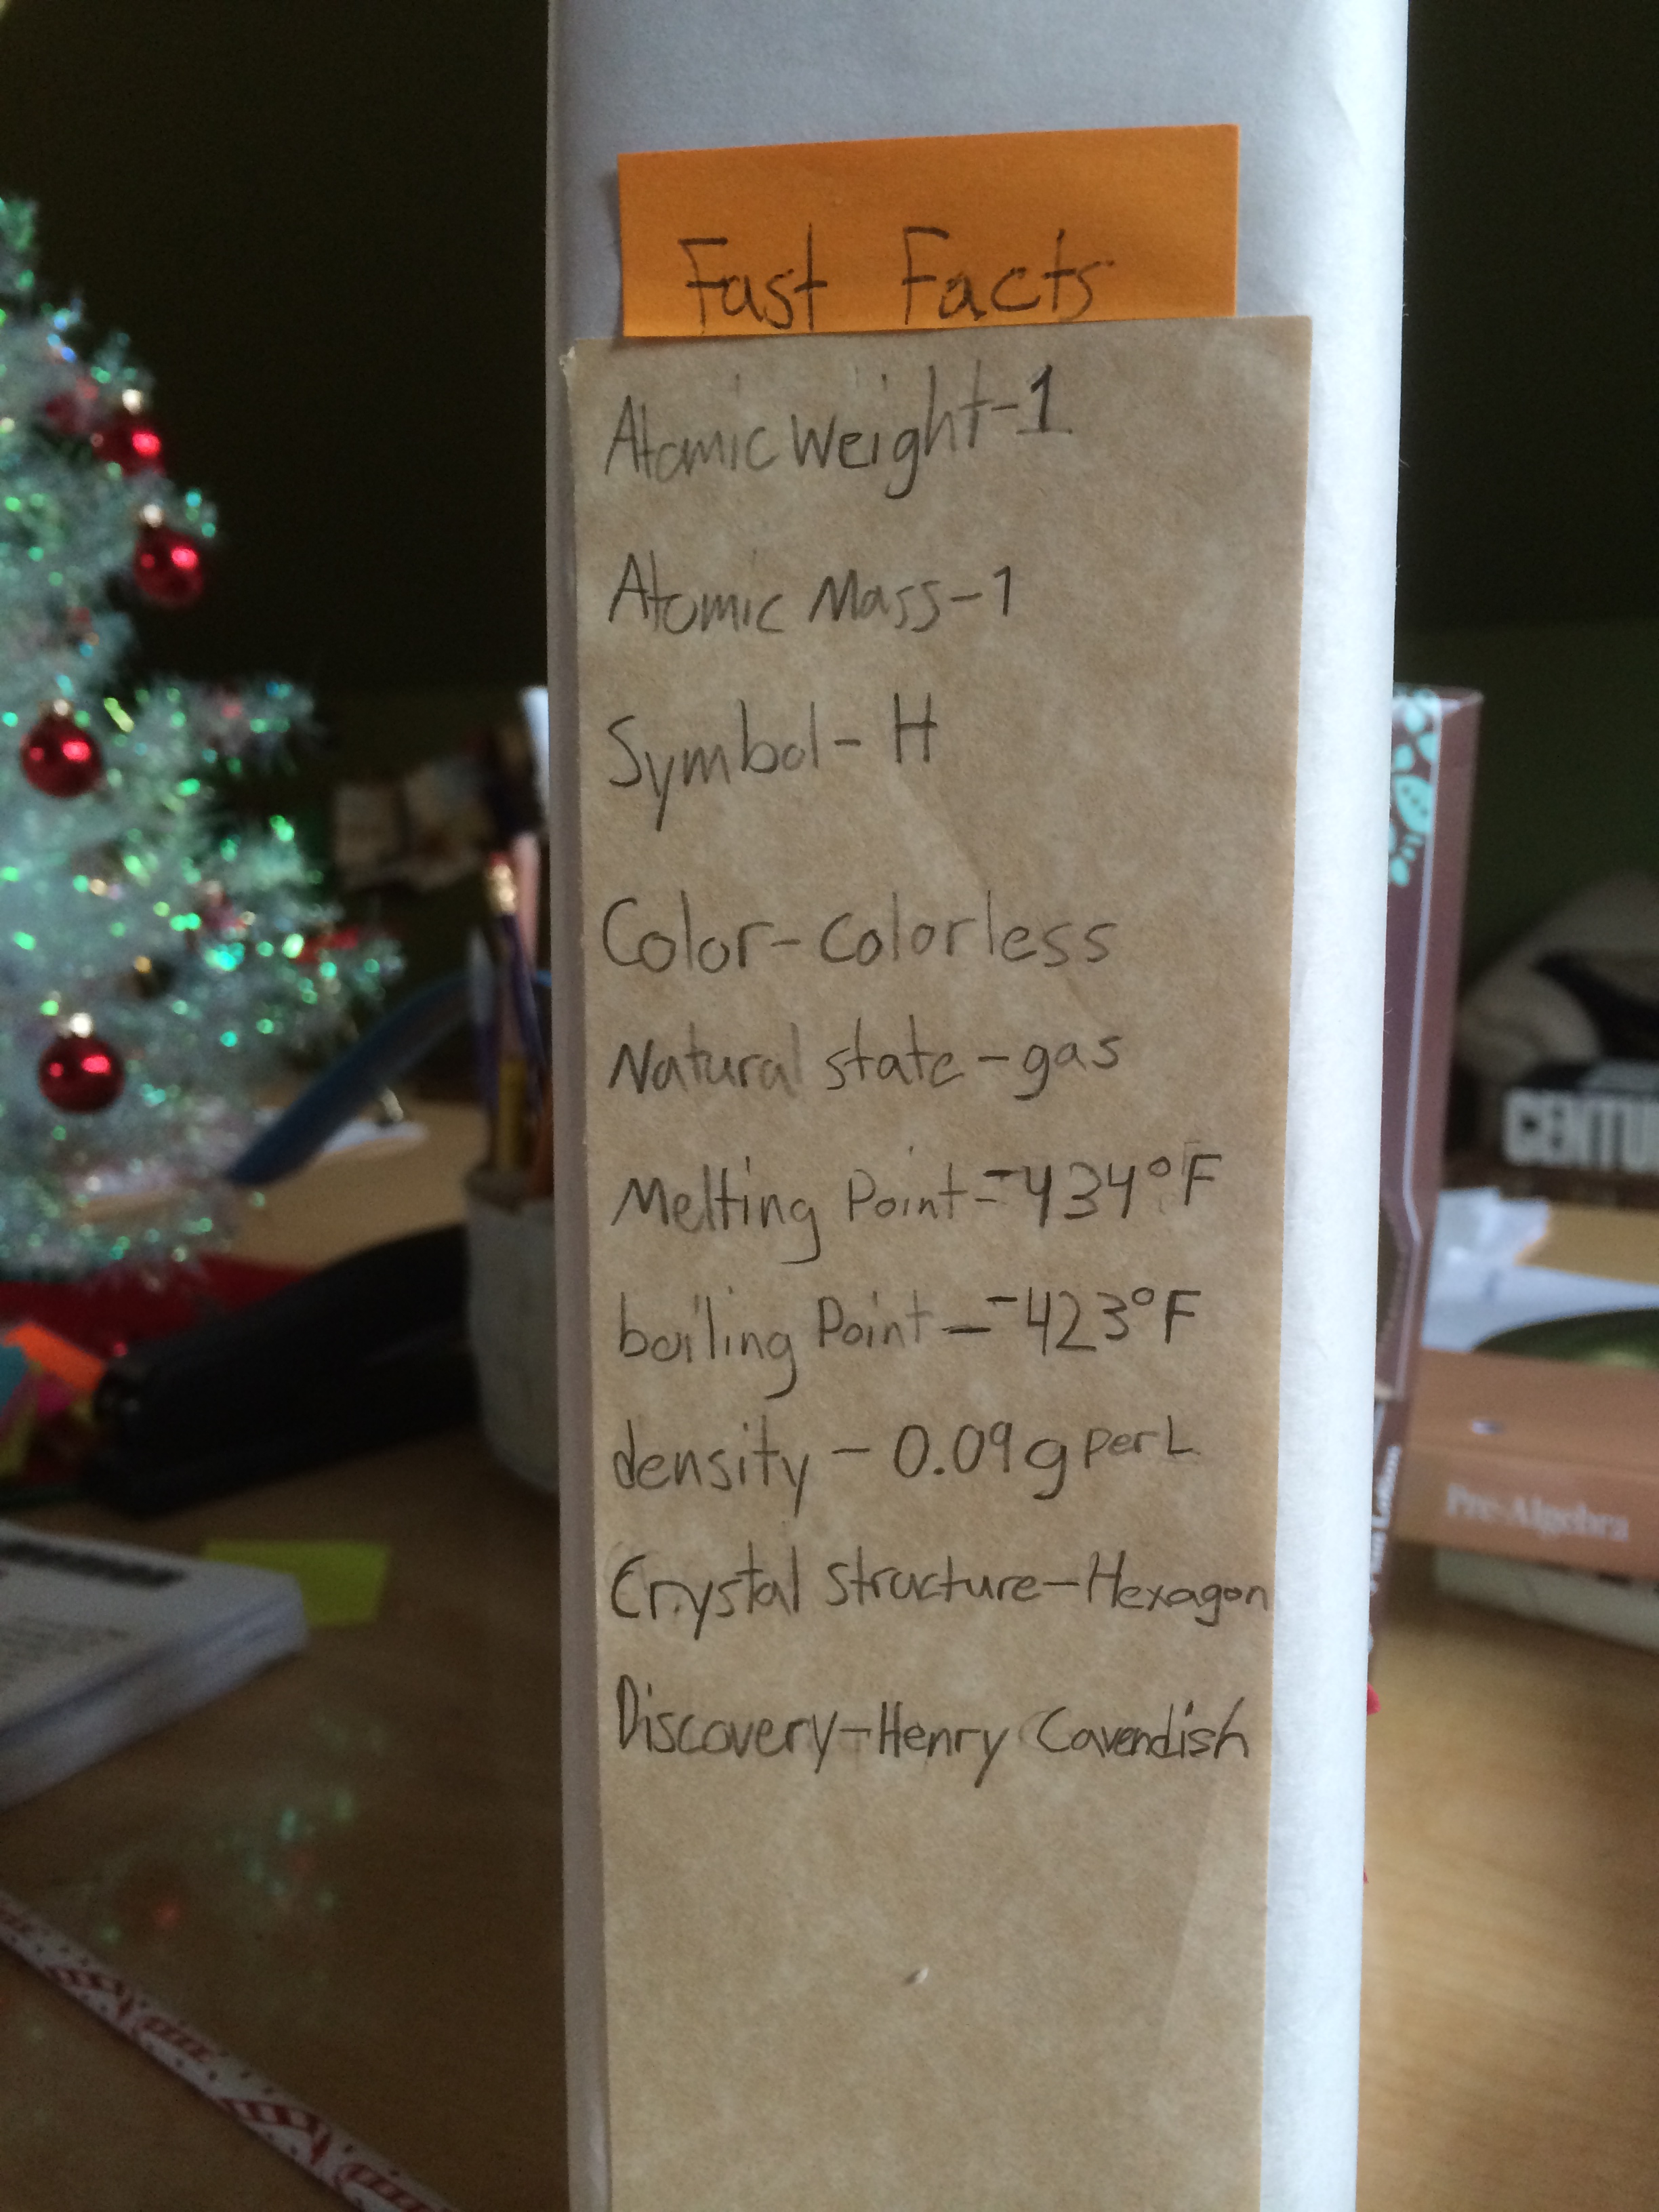 Fast Facts
Atomic Weight-1
Atomic Mass-1
Symbol- H
Color-colorless
Natural state-gas
Melting Point--434°F
boiling Point--423°F
density-0.09g per L
Crystal structure-Hexagon
Discovery-Henry Cavendish
CENTU
Pre-Algebra